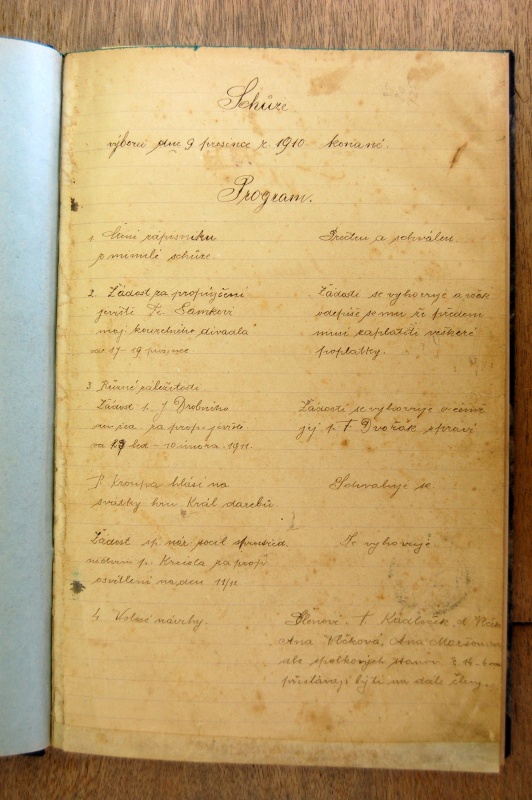 Schůze
výboru dne 9 prosince r. 1910 konané.
Program.
1. Čtení zápisníku
z minulé schůze.
Přečten a schválen.
2. Žádost za propůjčení
jeviště Fr.
"moj kouzelného divadla"
od 17 - 19 prosince
Žádosti se vyhovuje a
odepíše se mu že předem
musí zaplatiti veškeré
poplatky.
3. Různé záležitosti
Žádost p. J Drobného
za prop. jeviště
led - 10 února 1911.
Žádosti se vyhovuje o čemž
jej p. F. Dvořák zpraví
P. Kroupa hlásí na
svátky hru Král
Schvaluje se
Žádost sp. nár. sociál.
p. za prop.
osvětlení na den 11/12
Se vyhovuje
4. Volné návrhy.
Členové: F Kadleček, d
Ana Vlčková, Ana
dle spolkových stanov §
přestávají býti na dále členy.